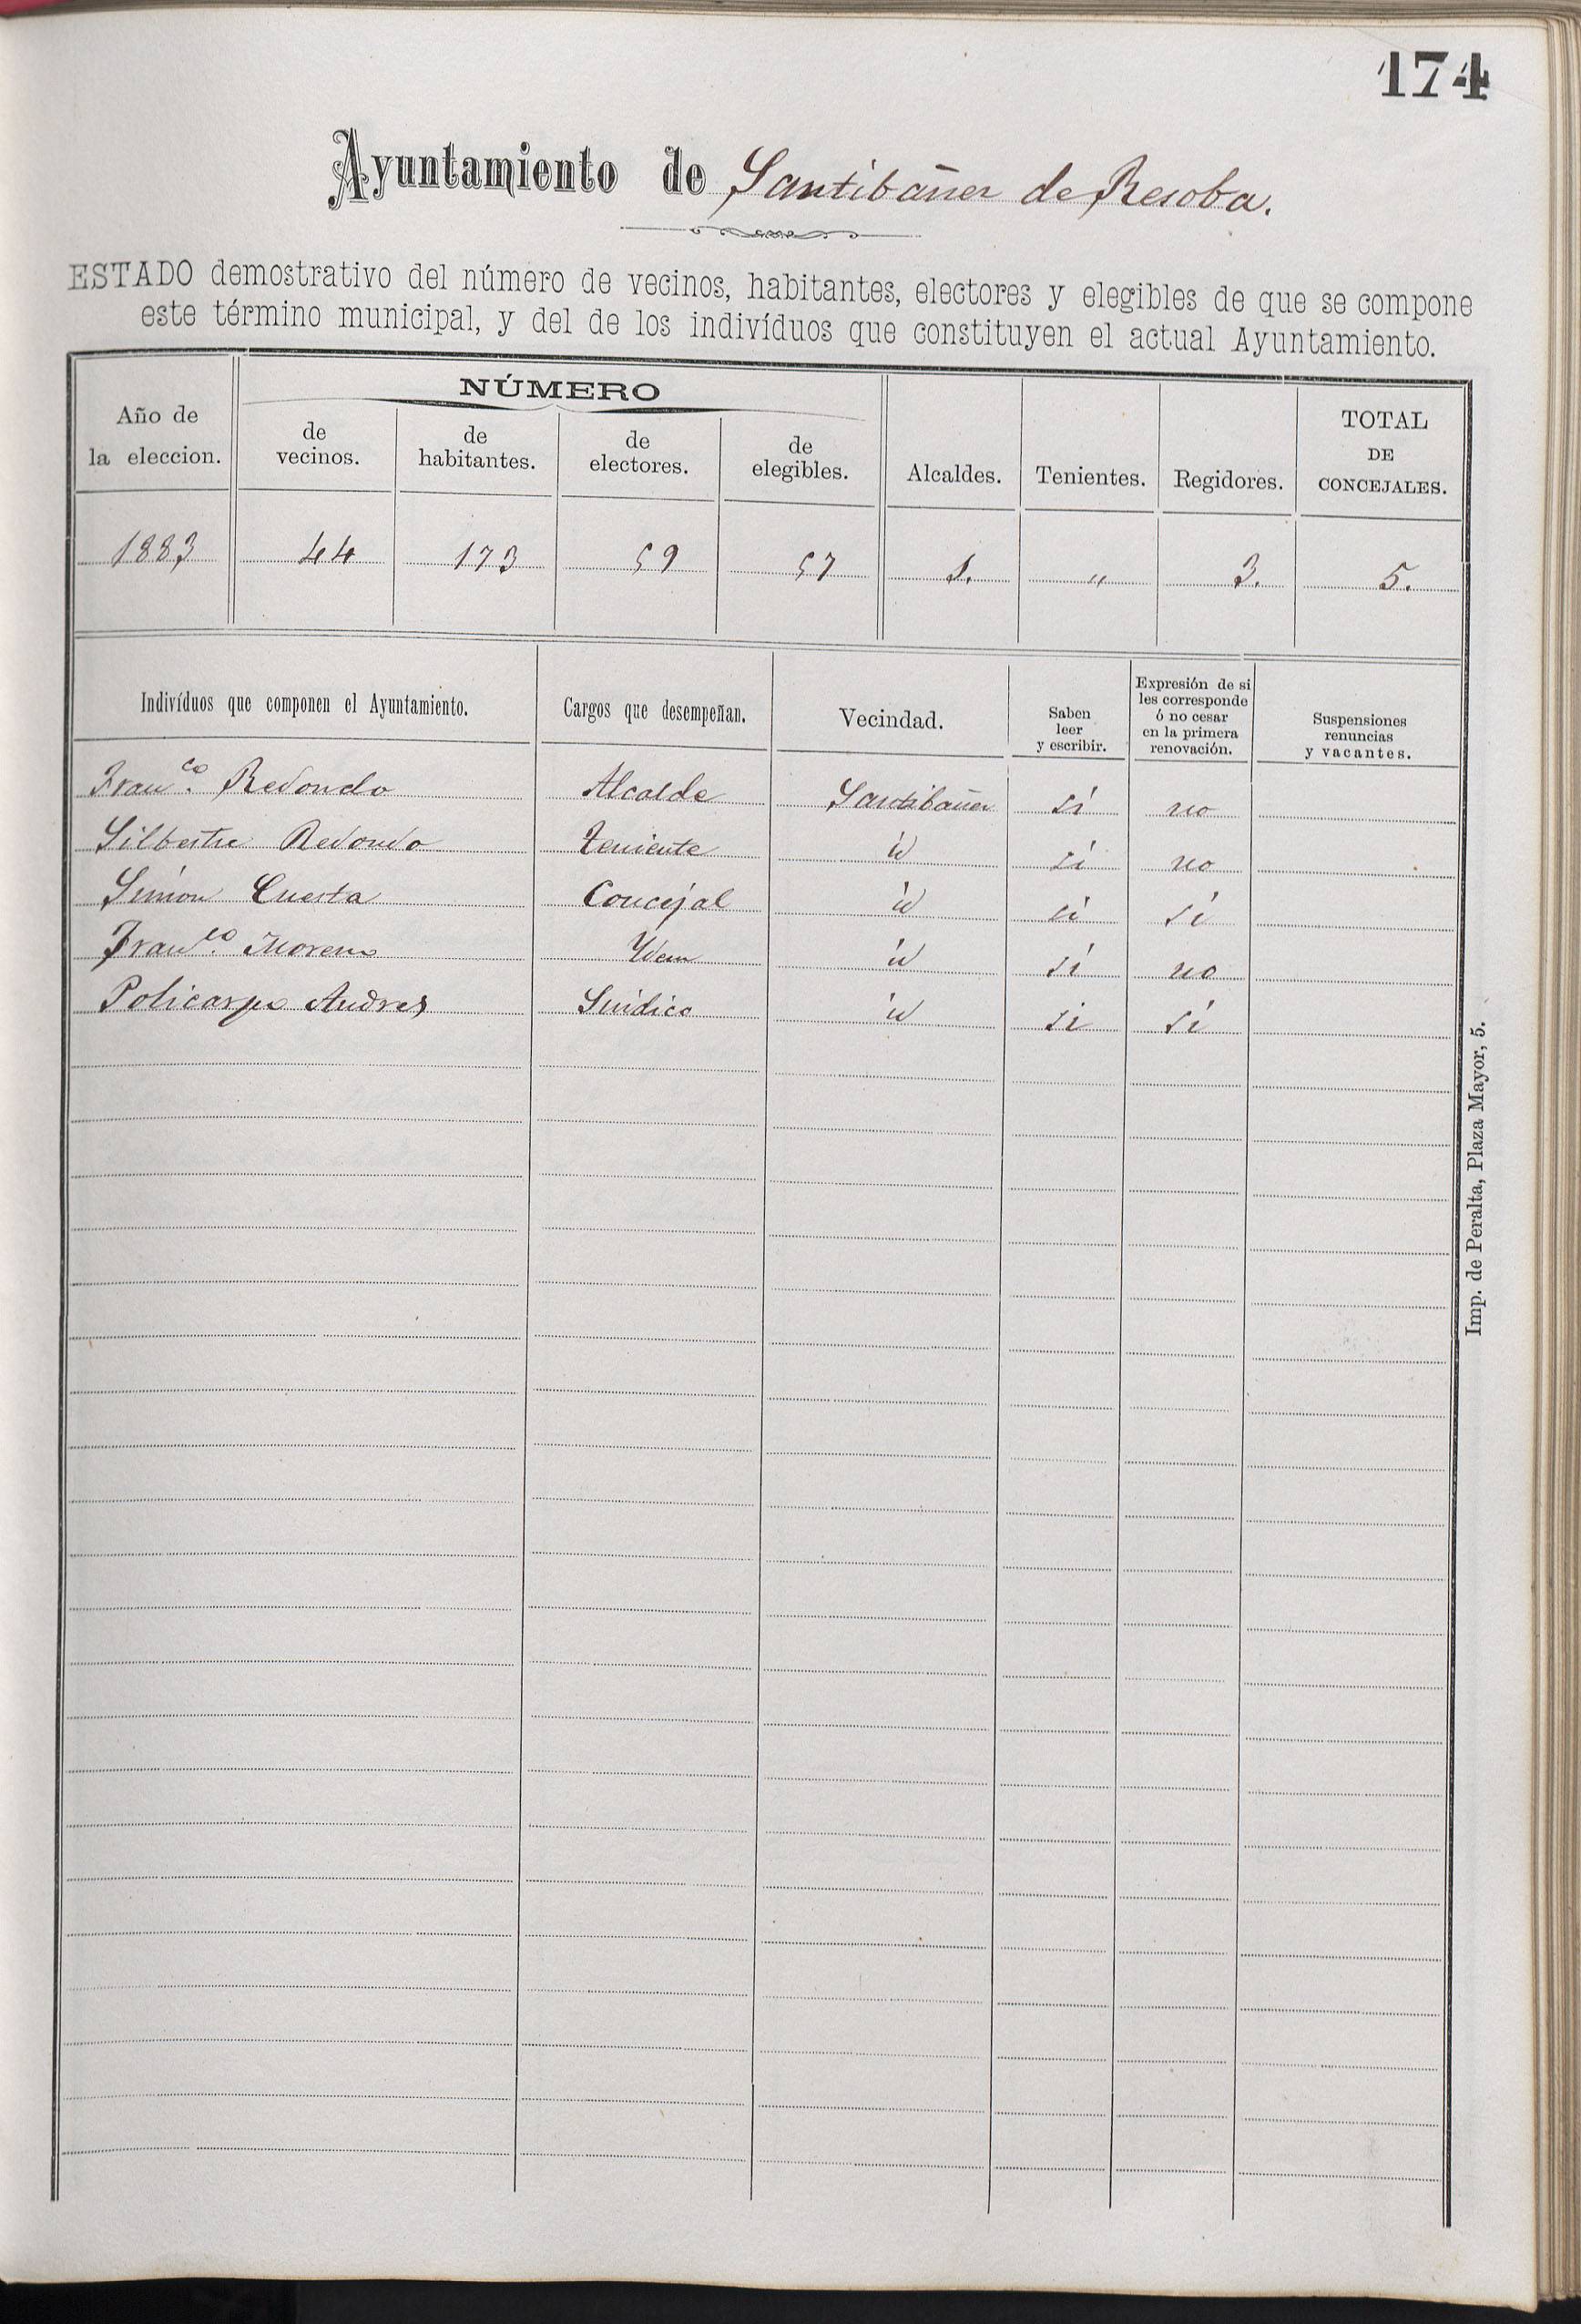 174
Ayuntamiento de Santibáñez de Resoba.
ESTADO demostrativo del número de vecinos, habitantes, electores y elegibles de que se compone
este término municipal, y del de los indivíduos que constituyen el actual Ayuntamiento.
Año de la eleccion. NÚMERO de vecinos. de habitantes. de electores. de elegibles. Alcaldes. Tenientes. Regidores. TOTAL DE CONCEJALES.
1883 44 173 59 57 1. " 3. 5.
Indivíduos que componen el Ayuntamiento. Cargos que desempeñan. Vecindad. Saben leer y escribir. Expresión de si les corresponde ó no cesar en la primera renovación. Suspensiones renuncias y vacantes.
Franco. Redondo Alcalde Santibañez si no
Silbestre Redondo teniente id si no
Simon Cuesta Concejal id si si
Franco. Moreno Ydem id si no
Policarpo Andres Sindico id si si
Imp. de Peralta, Plaza Mayor, 5.